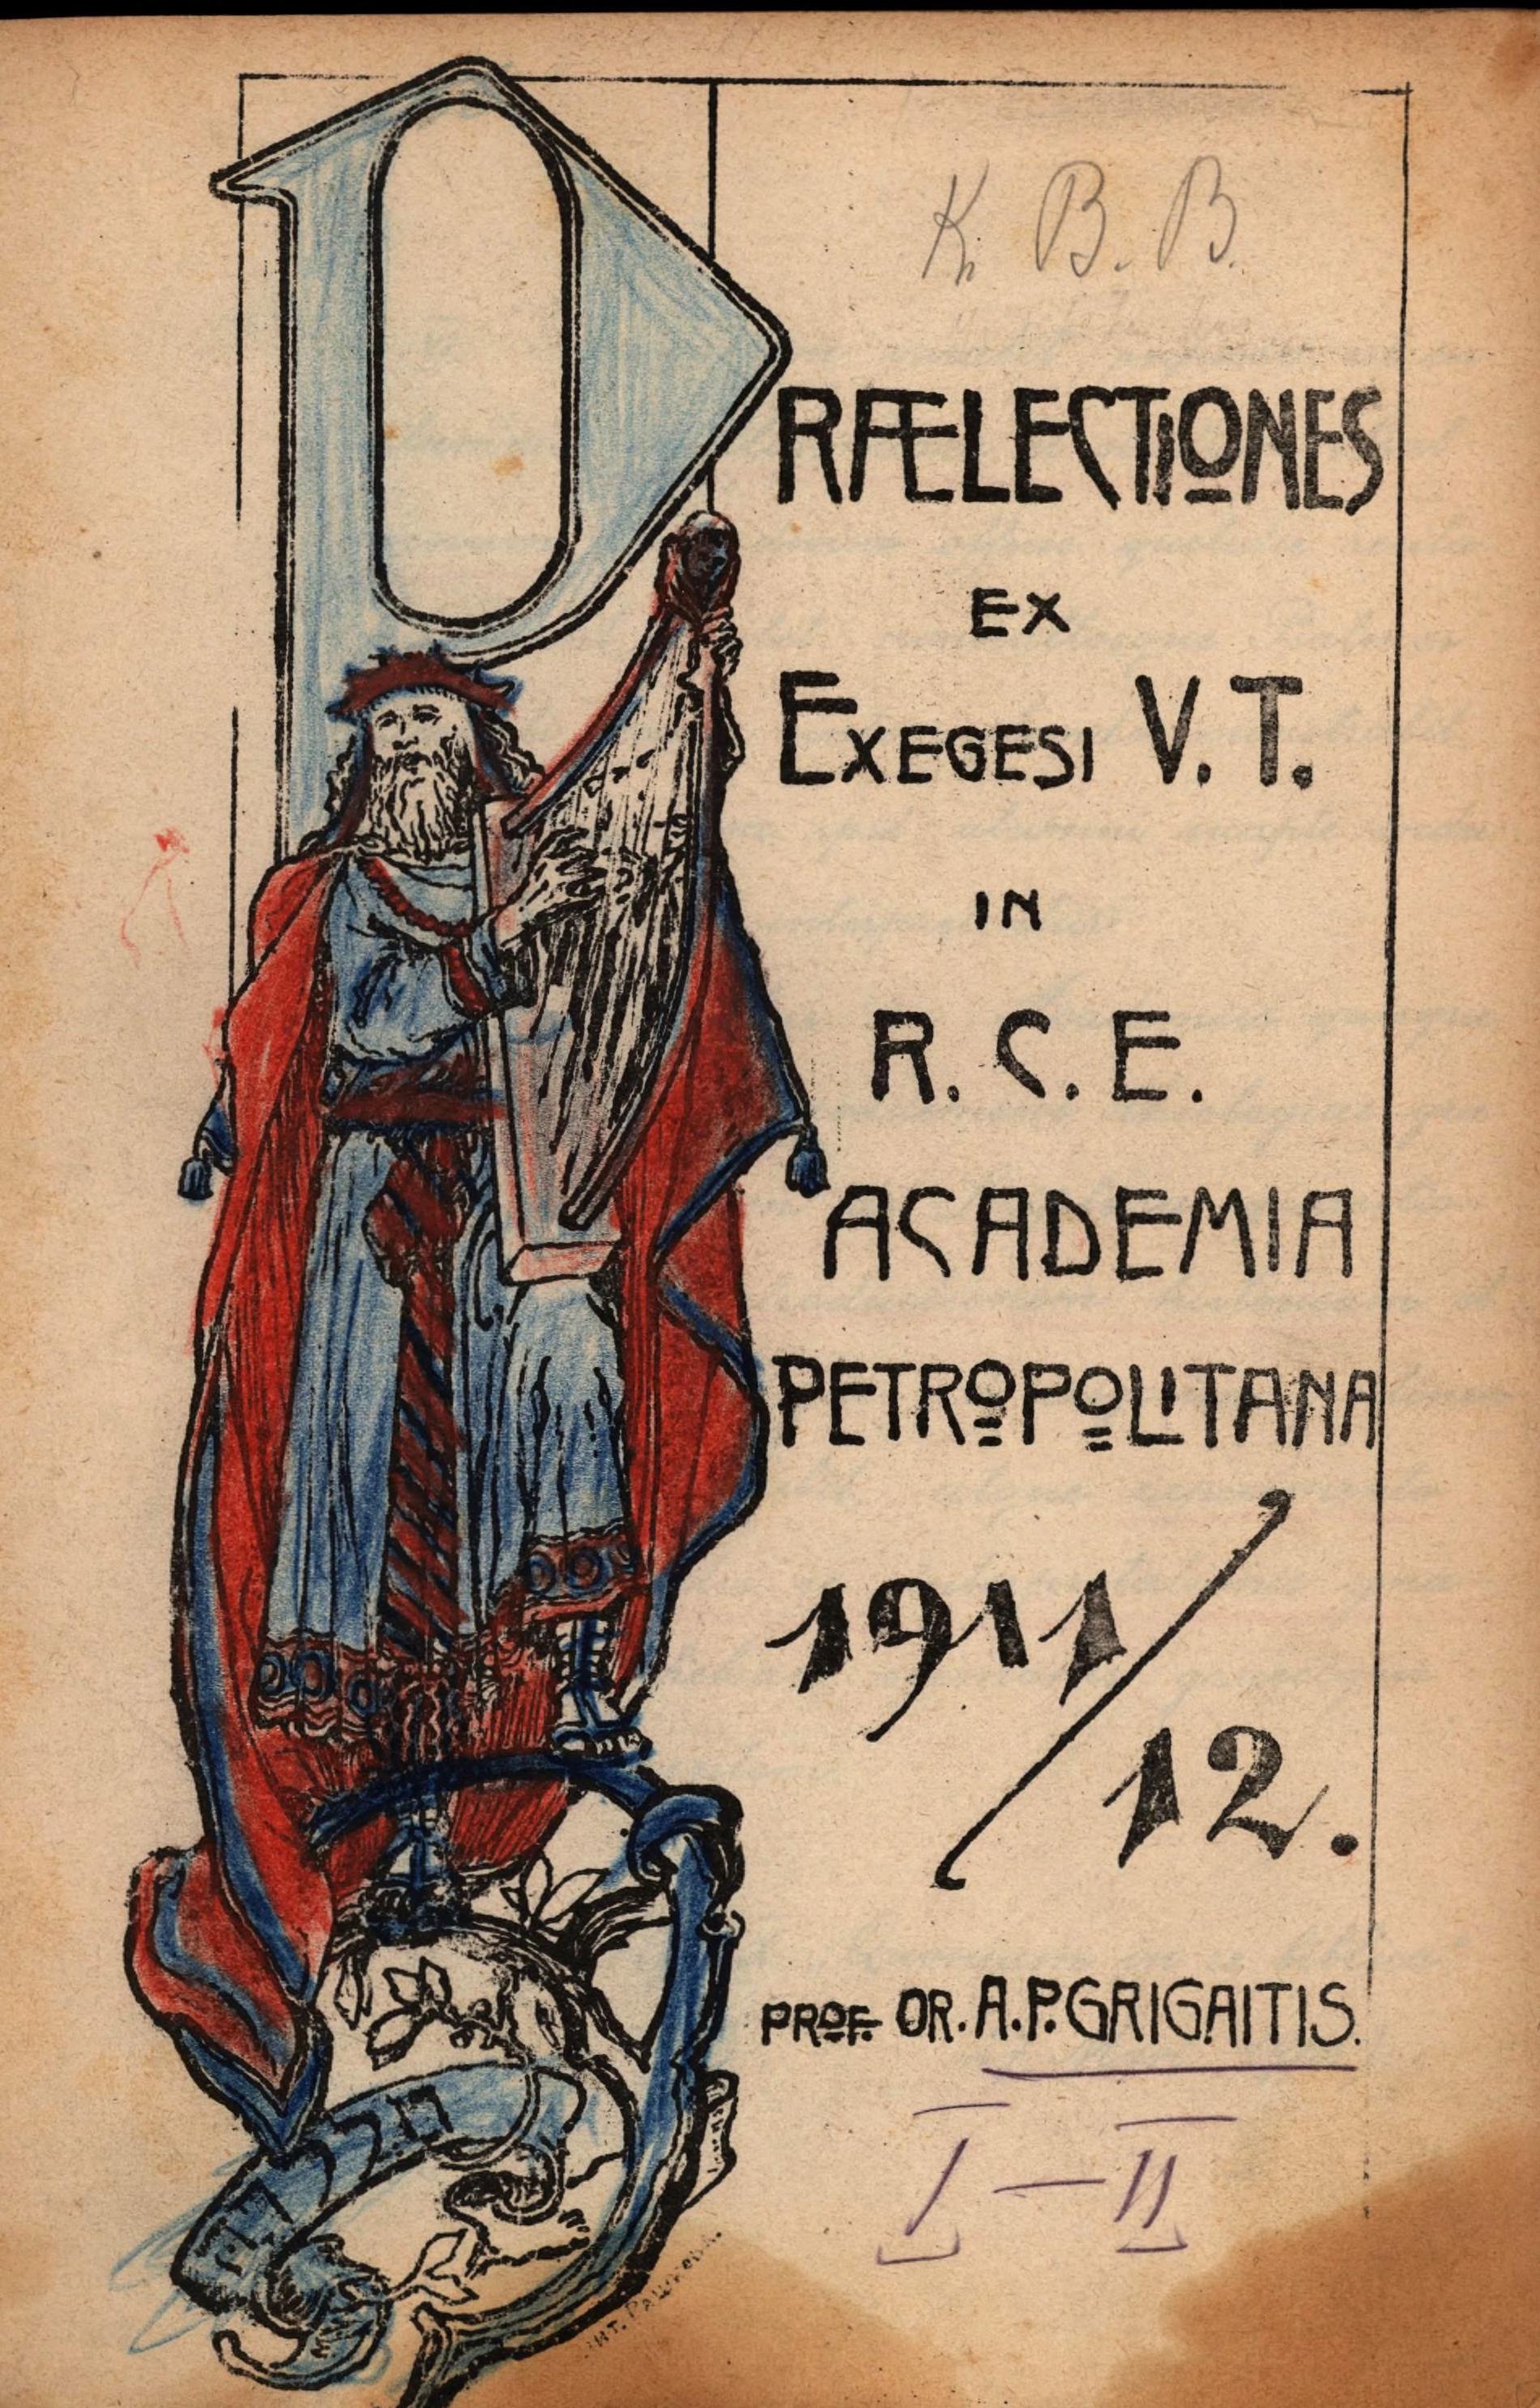 K. B. B.
PRÆLECTIONES
EX
EXEGESI V. T.
IN
R. C. E.
ACADEMIA
PETROPOLITANA
1911/12.
PROF. DR. A. P. GRIGAITIS.
I – II